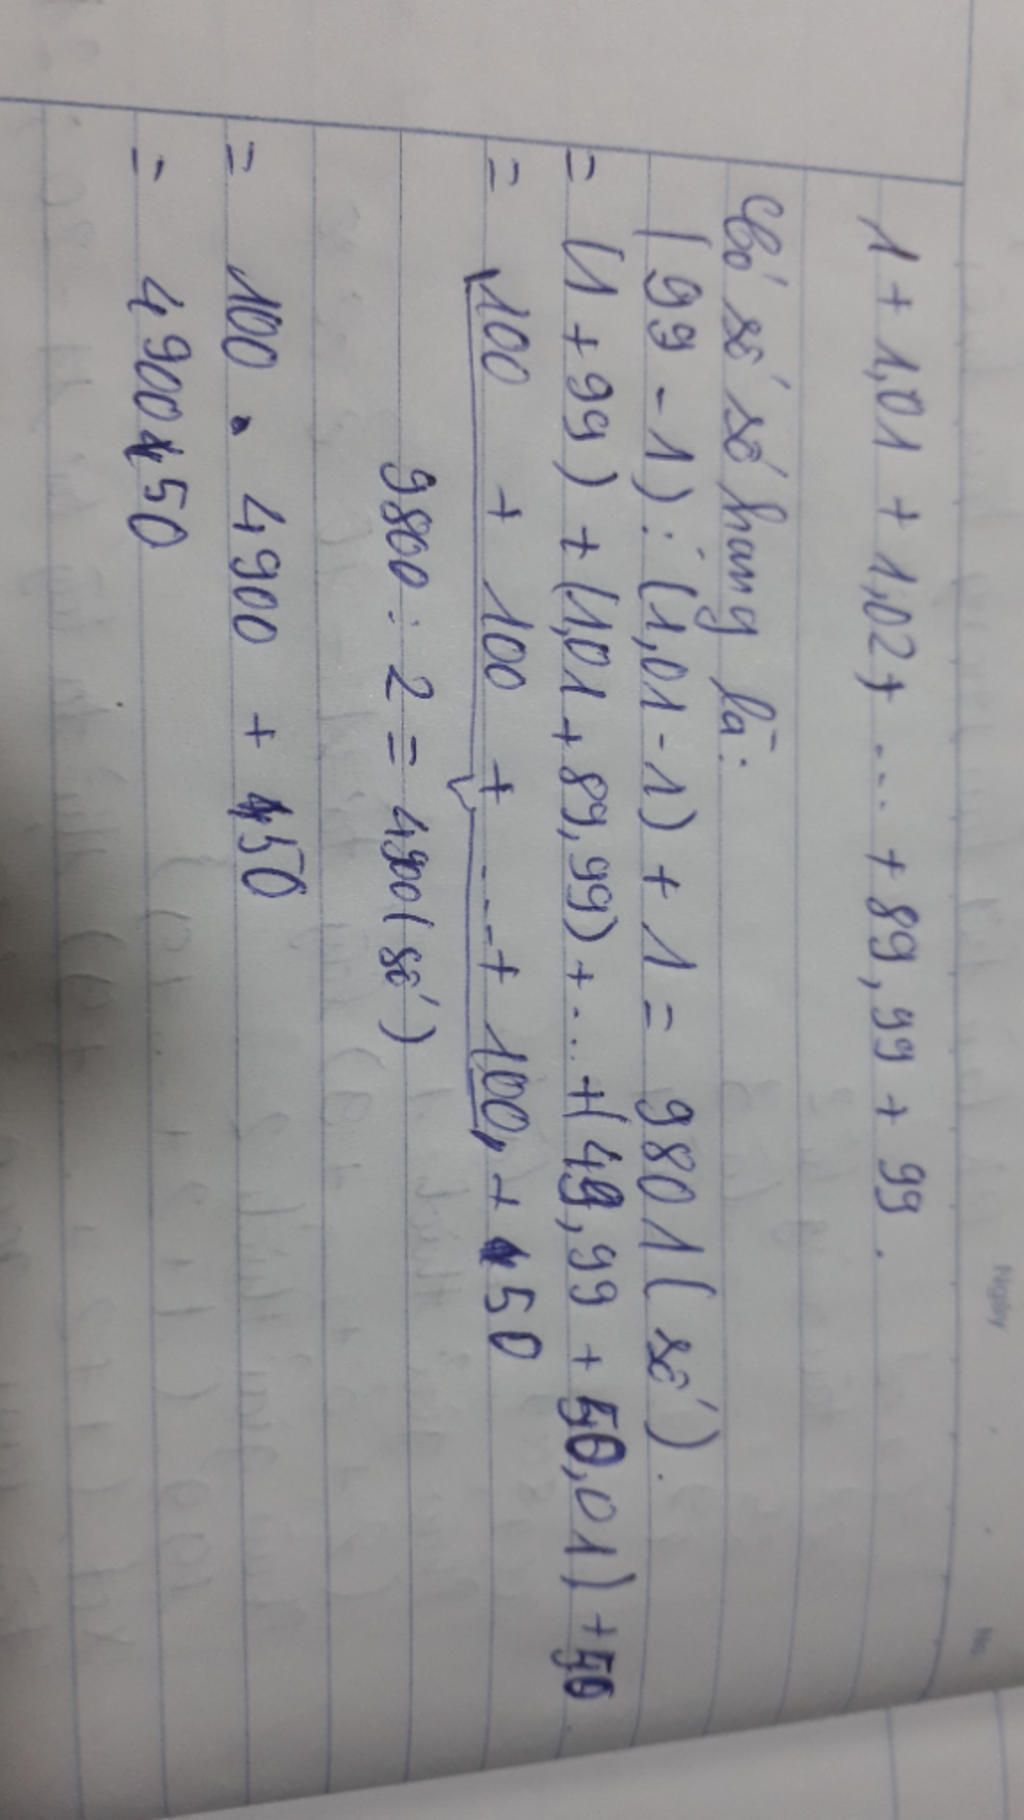 1 + 1,01 + 1,02 + ... + 89,99 + 99.
Có số số hạng là:
(99 - 1) : (1,01 - 1) + 1 = 9801 (số).
= (1 + 99) + (1,01 + 89,99) + ... + (49,99 + 50,01) + 50
= 100 + 100 + ... + 100 + 50
9800 : 2 = 4900 (số)
= 100 . 4900 + 50
= 490050
Ngày
No.